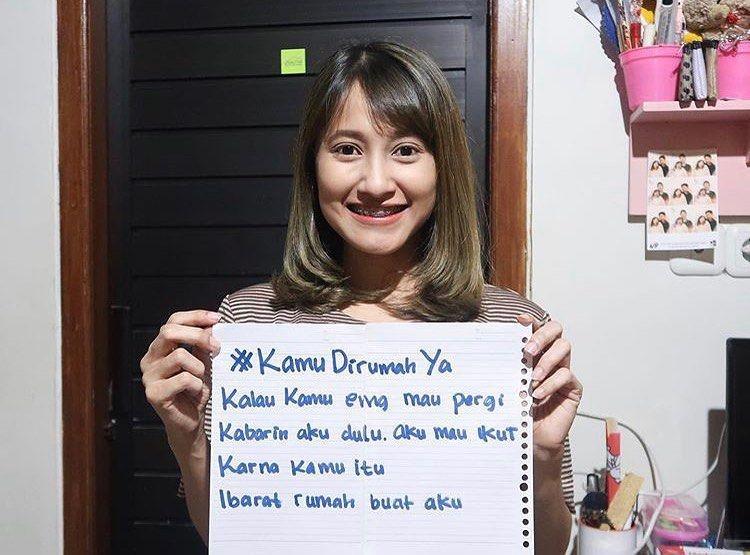 #Kamu Dirumah Ya
Kalau Kamu emg mau pergi
Kabarin aku dulu. Aku mau ikut
Karna kamu itu
Ibarat rumah buat aku